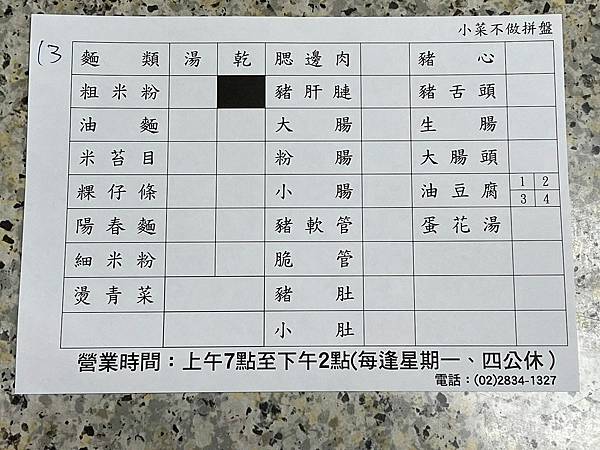 小菜不做拼盤
13
麵類 湯 乾 腮邊肉 豬心
粗米粉 豬肝腱 豬舌頭
油麵 大腸 生腸
米苔目 粉腸 大腸頭
粿仔條 小腸 油豆腐 1 2 3 4
陽春麵 豬軟管 蛋花湯
細米粉 脆管
燙青菜 豬肚
小肚
營業時間：上午7點至下午2點(每逢星期一、四公休)
電話：(02)2834-1327